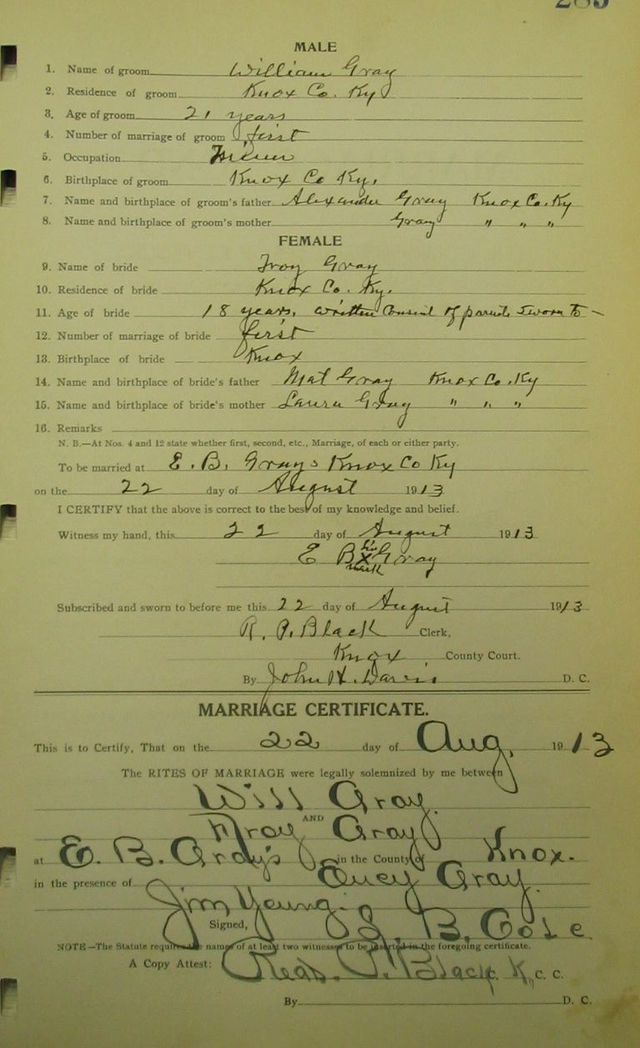 285
MALE
1. Name of groom William Gray
2. Residence of groom Knox Co. Ky
3. Age of groom 21 years
4. Number of marriage of groom first
5. Occupation
6. Birthplace of groom Knox Co Ky.
7. Name and birthplace of groom's father Alexander Gray Knox Co. Ky
8. Name and birthplace of groom's mother Gray " " "
FEMALE
9. Name of bride Troy Gray
10. Residence of bride Knox Co. Ky.
11. Age of bride 18 years, written consent of parents sworn to —
12. Number of marriage of bride first
13. Birthplace of bride Knox
14. Name and birthplace of bride's father Mat Gray Knox Co. Ky
15. Name and birthplace of bride's mother Laura Gray " " "
16. Remarks
N. B.—At Nos. 4 and 12 state whether first, second, etc., Marriage, of each or either party.
To be married at E. B. Grays Knox Co Ky
on the 22 day of August 1913
I CERTIFY that the above is correct to the best of my knowledge and belief.
Witness my hand, this 22 day of August 1913
E B his x mark Gray
Subscribed and sworn to before me this 22 day of August 1913
R. P. Black Clerk,
Knox County Court.
By John H. Davis D. C.
MARRIAGE CERTIFICATE.
This is to Certify, That on the 22 day of Aug, 1913
The RITES OF MARRIAGE were legally solemnized by me between
Will Gray.
AND
Troy Gray
at E. B. Gray's in the County of Knox.
in the presence of Gray.
Jim Young.
Signed, B. Cole
NOTE—The Statute requires the names of at least two witnesses to be inserted in the foregoing certificate.
A Copy Attest: Read. P. Black, K C. C.
By D. C.